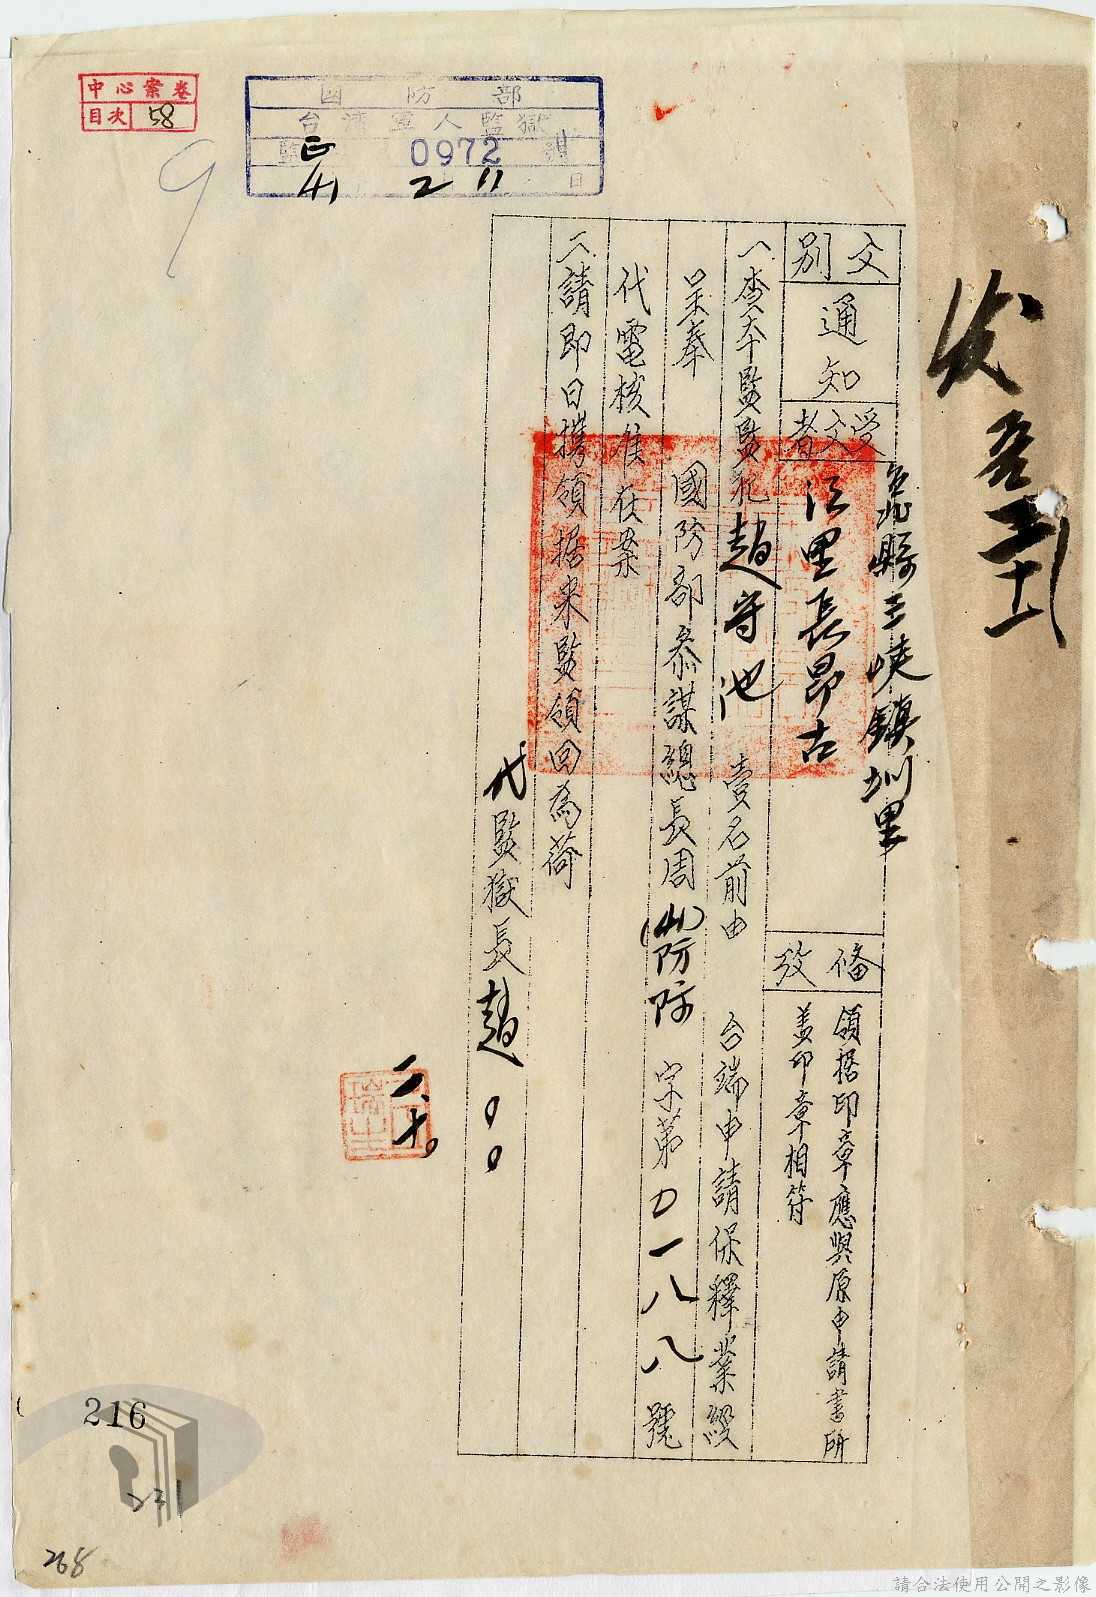 中心案卷
目次 58
國防部
台灣軍人監獄
監正 0972 號
41 2 11 日
文別
通知
受文者
台北縣三峽鎮圳里
江里長昂古
備攷
領据印章應與原申請書所
蓋印章相符
一、查本監監犯趙守池壹名前由 台端申請保釋業經
呈奉 國防部參謀總長周(41)防際字第0一八八號
代電核准在案
二、請即日攜領据來監領回為荷
代監獄長趙
二、十。
216
231
268
請合法使用公開之影像